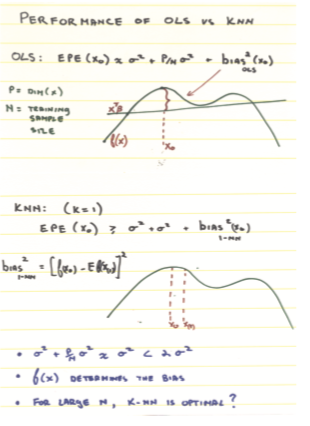 PERFORMANCE OF OLS VS KNN
OLS: EPE(x₀) ≈ σ² + P/N σ² + bias²(x₀)
OLS
P = DIM(X)
N = TRAINING
SAMPLE
SIZE
xᵀβ
f(x)
x₀
KNN: (K=1)
EPE(x₀) ≥ σ² + σ² + bias²(x₀)
1-NN
bias² = [f(x₀) - E f(x₍₁₎)]²
1-NN
x₀ x₍₁₎
• σ² + P/N σ² ≈ σ² < 2σ²
• f(x) DETERMINES THE BIAS
• FOR LARGE N, K-NN IS OPTIMAL?